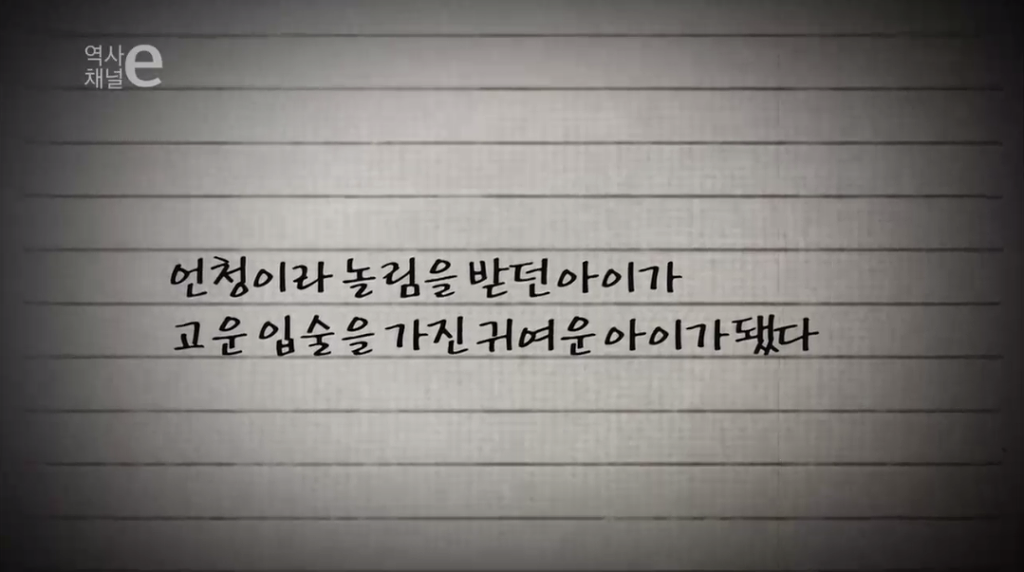 역사
채널e
언청이라 놀림을 받던 아이가
고운 입술을 가진 귀여운 아이가 됐다